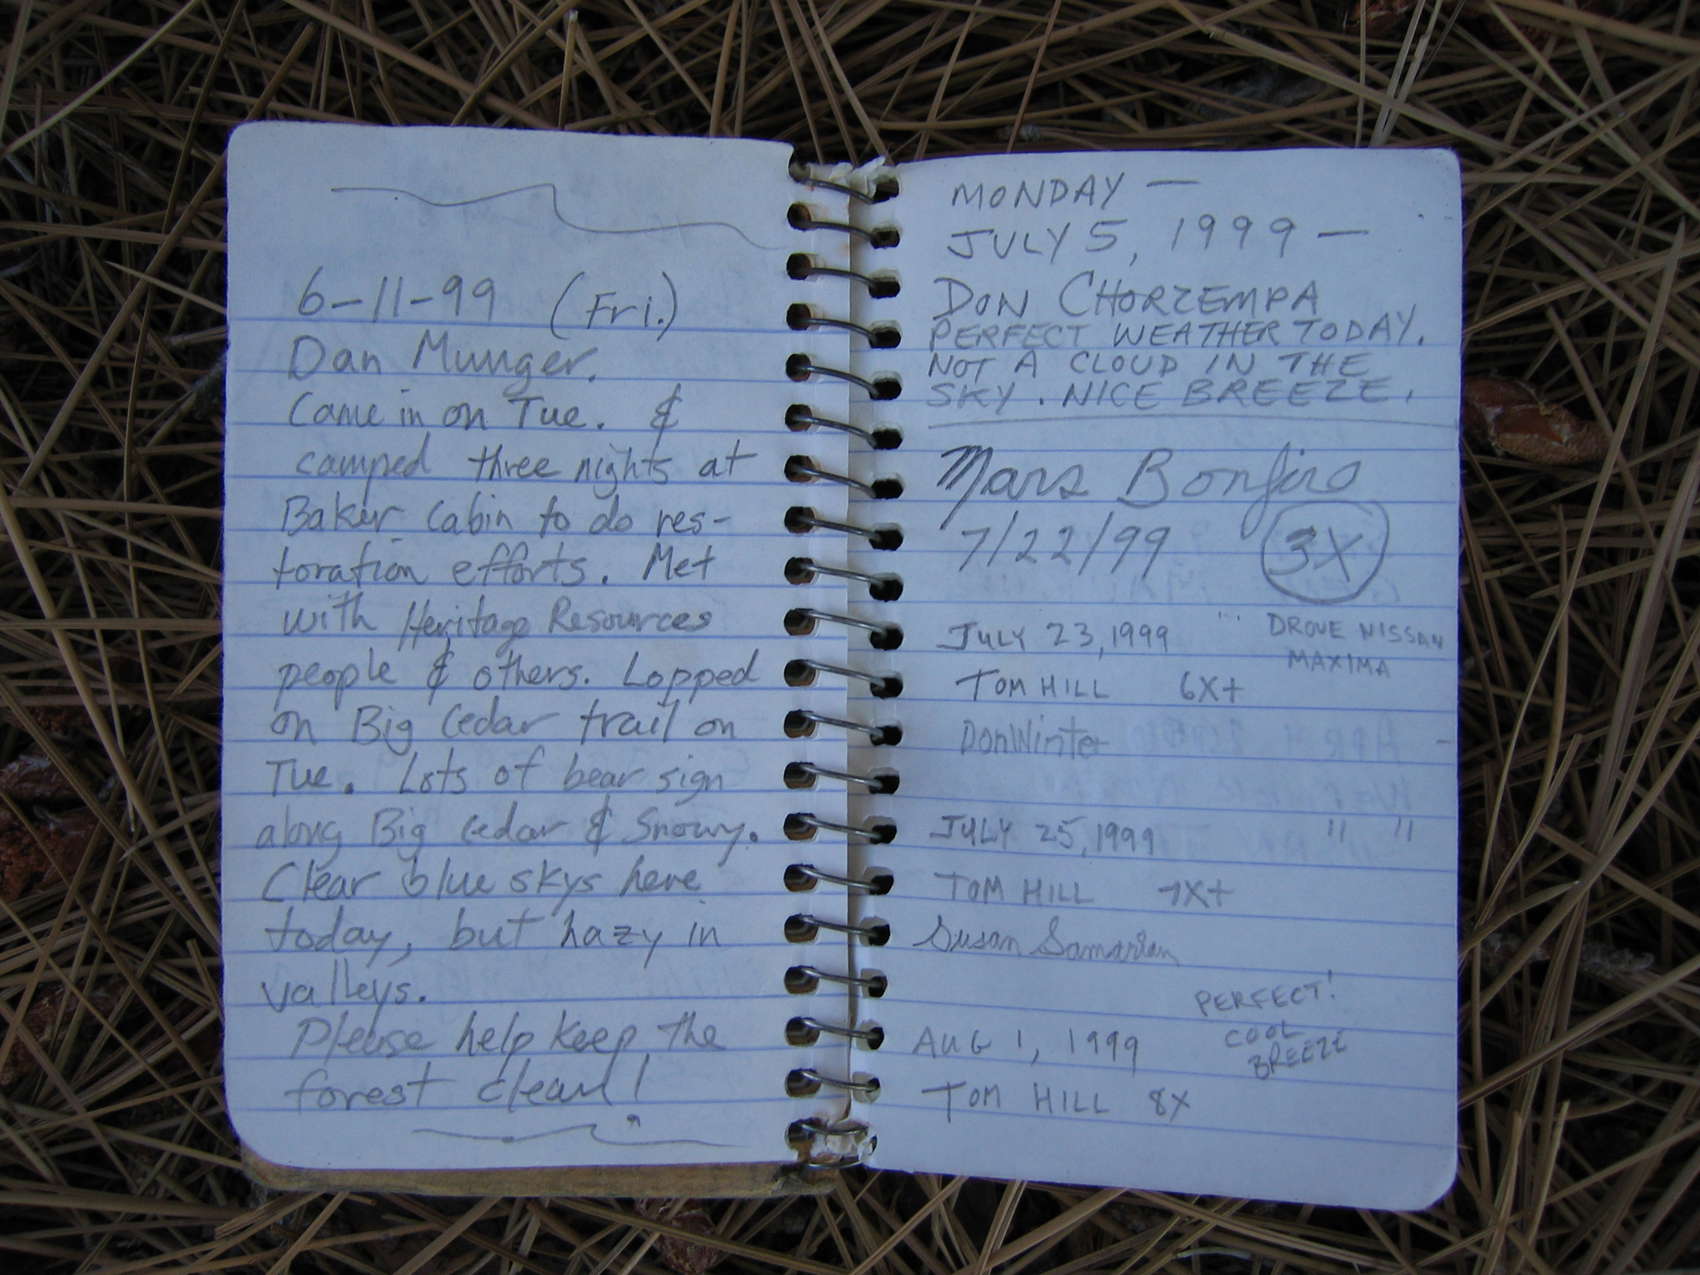 6-11-99 (Fri.)
Dan Munger.
Came in on Tue. &
camped three nights at
Baker Cabin to do res-
toration efforts. Met
with Heritage Resources
people & others. Lopped
on Big Cedar trail on
Tue. Lots of bear sign
along Big Cedar & Snowy.
Clear blue skys here
today, but hazy in
valleys.
Please help keep the
forest clean!
MONDAY —
JULY 5, 1999 —
DON CHORZEMPA
PERFECT WEATHER TODAY.
NOT A CLOUD IN THE
SKY. NICE BREEZE.
Mars Bonfire
7/22/99 3X
JULY 23, 1999 DROVE NISSAN
MAXIMA
TOM HILL 6X+
Don Winter
JULY 25, 1999 " "
TOM HILL 7X+
Susan
PERFECT!
AUG 1, 1999 COOL
BREEZE
TOM HILL 8X